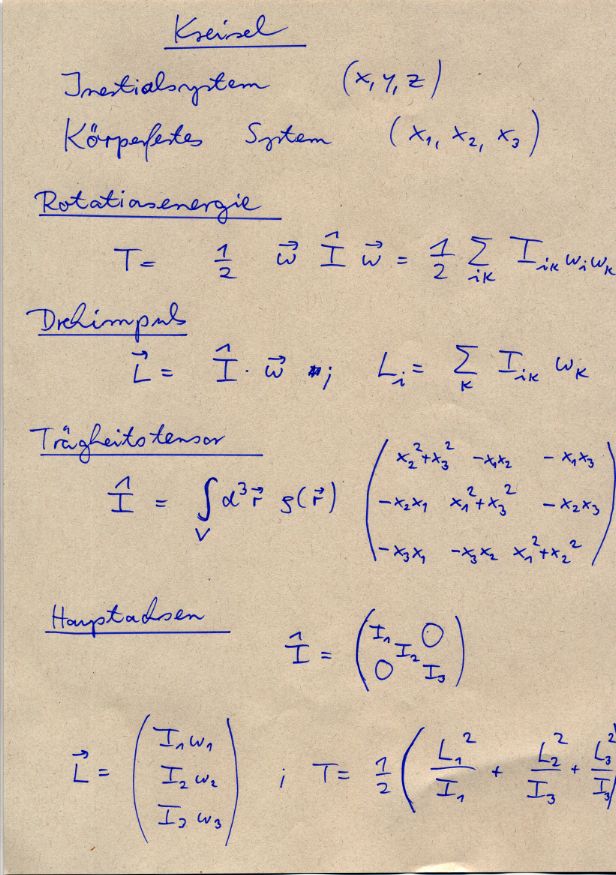 Kreisel
Inertialsystem (x, y, z)
Körperfestes System (x₁, x₂, x₃)
Rotationsenergie
T = 1/2 ω⃗ Î ω⃗ = 1/2 ∑_{ik} I_{ik} ω_i ω_k
Drehimpuls
L⃗ = Î · ω⃗ ; L_i = ∑_k I_{ik} ω_k
Trägheitstensor
Î = ∫_V d³r⃗ ρ(r⃗) ( x₂²+x₃² -x₁x₂ -x₁x₃
-x₂x₁ x₁²+x₃² -x₂x₃
-x₃x₁ -x₃x₂ x₁²+x₂² )
Hauptachsen
Î = ( I₁ 0
I₂
0 I₃ )
L⃗ = ( I₁ω₁
I₂ω₂
I₃ω₃ ) ; T = 1/2 ( L₁²/I₁ + L₂²/I₃ + L₃²/I₃ )